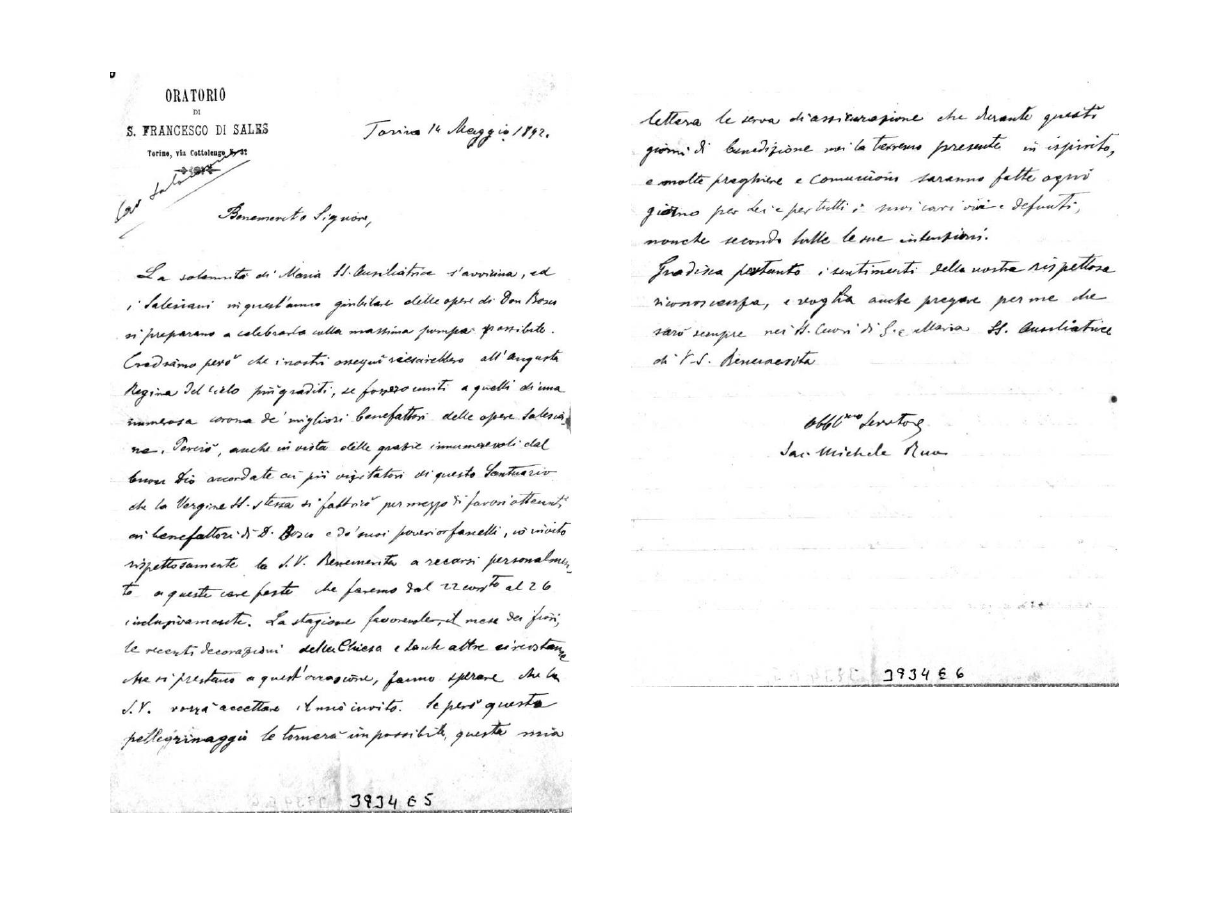 ORATORIO
DI
S. FRANCESCO DI SALES
Torino, via Cottolengo N. 32
Torino 14 Maggio 1892.
Benemerito Signore,
La solennità di Maria SS. Ausiliatrice s'avvicina, ed
i Salesiani in quest'anno giubilare delle opere di Don Bosco
si preparano a celebrarla colla massima pompa possibile.
Crediamo però che i nostri ossequi riescirebbero all'Augusta
Regina del cielo più graditi, se fossero uniti a quelli di una
numerosa corona de' migliori benefattori delle opere Salesia
ne. Perciò, anche in vista delle grazie innumerevoli dal
buon Dio accordate ai pii visitatori di questo Santuario
che la Vergine SS. stessa si fabbricò per mezzo di favori ottenuti
ai benefattori di D. Bosco e de' suoi poveri orfanelli, io invito
rispettosamente la S.V. Benemerita a recarsi personalmen
te a queste care feste che faremo dal 22 corr.te al 26
inclusivamente. La stagione favorevole, il mese dei fiori,
le recenti decorazioni della Chiesa e tante altre circostanze
che si prestano a quest'occasione, fanno sperare che la
S.V. vorrà accettare il mio invito. Se però questo
pellegrinaggio le tornerà impossibile, questa mia
3934 E 5
lettera le serva di assicurazione che durante questi
giorni di benedizione noi la terremo presente in ispirito,
e molte preghiere e Comunioni saranno fatte ogni
giorno per lei e per tutti i suoi cari vivi e defunti,
nonche secondo tutte le sue intenzioni.
Gradisca pertanto i sentimenti della nostra rispettosa
riconoscenza, e voglia anche pregare per me che
sarò sempre nei SS. Cuori di G. e Maria SS. Ausiliatrice
di V. S. Benemerita
Obbl.mo Servitore
Sac. Michele Rua
3934 E 6